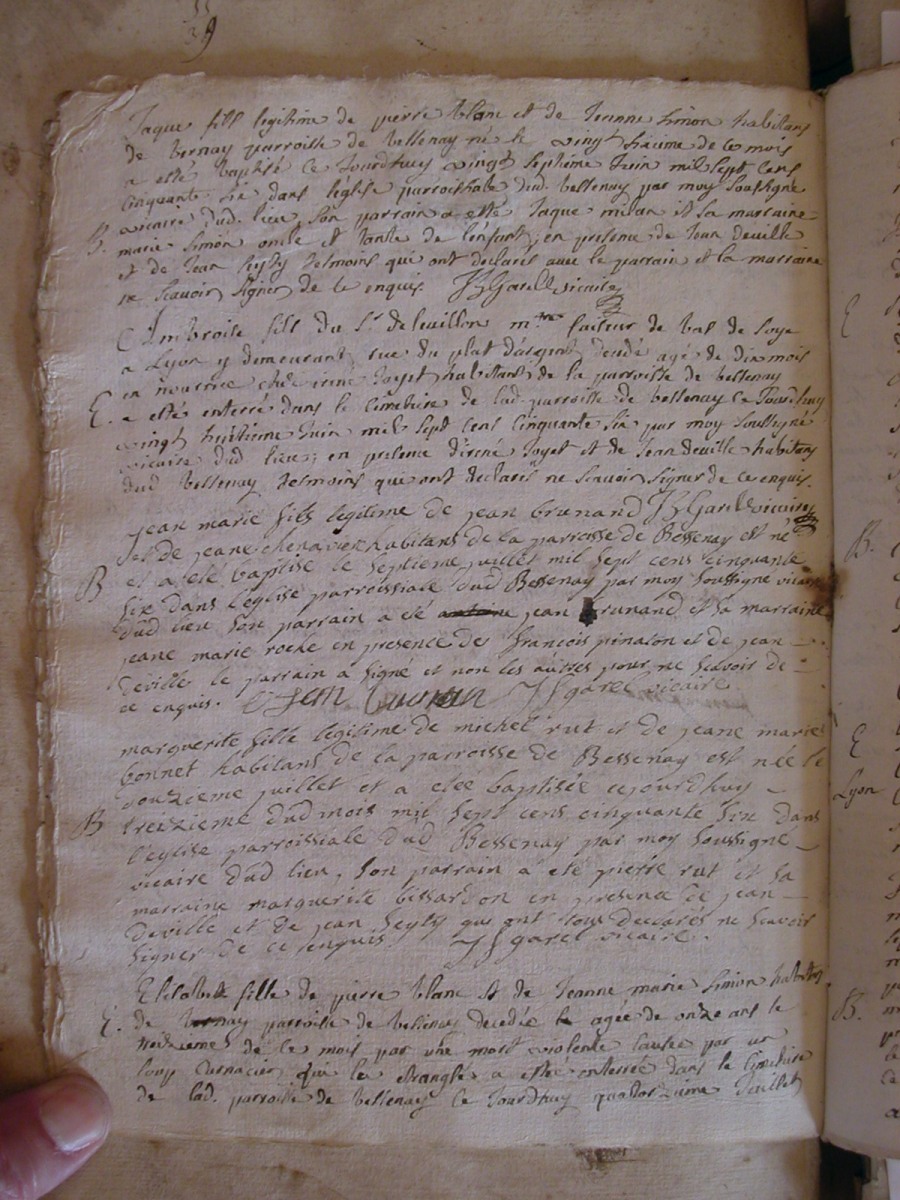 Jaque fils legitime de pierre blanc et de Jeanne Simon habitans
de Vernay parroisse de bessenay né le vingt de ce mois
a esté baptisé ce Jourdhuy vingt septieme Juin mil sept cens
Cinquante Six dans leglise parrochiale dud. bessenay par moy soussigné
vicaire dud. lieu, son parrain a esté Jaque milan et sa marraine
B. marie simon oncle et tante de l'enfant, en presence de Jean deville
et de Jean seytz tesmoins qui ont declarés avec le parrain et la marraine
ne scavoir signer de ce enquis JSGarel vicaire
Ambroise fils du Sr deleuillon mtre faiseur de bas de soye
a Lyon y demeurant, rue du plat d'argent, decedé agé de dix mois
en nourrice chés irené Joyet habitans de la parroisse de bessenay
E. a esté enterré dans le cimetiere de lad. parroisse de bessenay ce Jourdhuy
vingt huitieme Juin mil sept cens cinquante six par moy soussigné
vicaire dud lieu; en presence d'irené Joyet et de Jean deville habitans
dud bessenay tesmoins qui ont declarés ne scavoir signer de ce enquis.
JSGarel vicaire
jean marie fils legitime de jean brunand
et de jeane chenavier habitans de la paroisse de Bessenay est né
B et a eté baptise le septieme juillet mil sept cens cinquante
six dans l'eglise parroissiale dud Bessenay par moy soussigné vicaire
dud lieu son parrain a eté jean brunand et sa marraine
jeane marie roche en presence de francois pinaton et de jean
deville le parrain a signé et non les autres pour ne scavoir de
ce enquis. JSgarel vicaire
marguerite fille legitime de michel rut et de jeane marie
bonnet habitans de la parroisse de Bessenay est née le
douzieme juillet et a eteé baptisée cejourdhuy
B treizieme dud mois mil sept cens cinquante six dans
l'eglise parroissiale dud Bessenay par moy soussigné
vicaire dud lieu, son parrain a eté pierre rut et sa
marraine marguerite bissardon en presence de jean
deville et de jean seyty qui ont tous declarés ne scavoir
signer de ce enquis JSgarel vicaire.
Elisabeth fille de pierre blanc et de Jeanne marie simon habitans
E. de Vernay parroisse de bessenay decedée agée de onze ans le
treizieme de ce mois par une mort violente causée par un
loup carnacier qui la etranglée a esté enterrée dans le Cimetiere
de lad. parroisse de bessenay ce Jourdhuy quatorzieme Juillet
E
B.
E
Lyon
B.